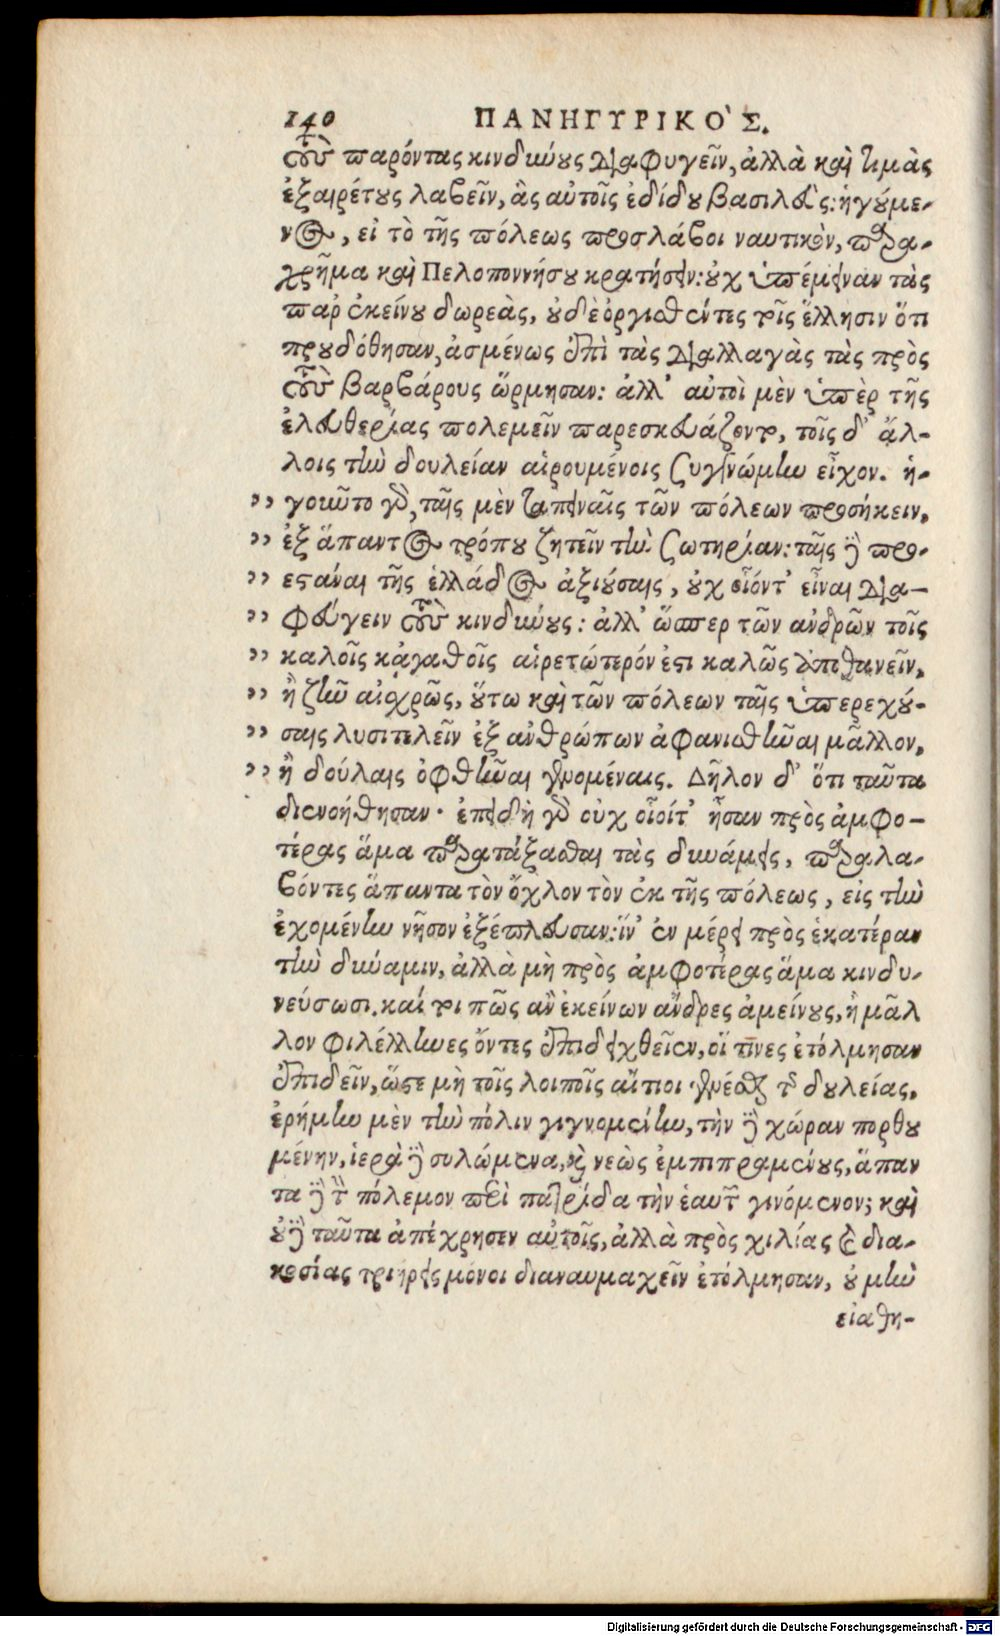 140 ΠΑΝΗΓΥΡΙΚΟ`Σ.
τοὺς παρόντας κινδύνους διαφυγεῖν, ἀλλὰ καὶ τιμὰς
ἐξαιρέτους λαβεῖν, ἃς αὐτοῖς ἐδίδου βασιλεύς: ἡγούμε-
νος, εἰ τὸ τῆς πόλεως προσλάβοι ναυτικὸν, παρα-
χρῆμα καὶ Πελοποννήσου κρατήσειν: οὐχ ὑπέμειναν τὰς
παρ ἐκείνου δωρεὰς, οὐδὲ ὀργισθέντες τοῖς ἕλλησιν ὅτι
προυδόθησαν, ἀσμένως ἐπὶ τὰς διαλλαγὰς τὰς πρὸς
τοὺς βαρβάρους ὥρμησαν: ἀλλ' αὐτοὶ μὲν ὑπὲρ τῆς
ἐλευθερίας πολεμεῖν παρεσκευάζοντο, τοῖς δ' ἄλ-
λοις τὴν δουλείαν αἱρουμένοις συγγνώμην εἶχον. ἡ-
,, γοῦντο γὰρ, ταῖς μὲν ταπειναῖς τῶν πόλεων προσήκειν,
,, ἐξ ἅπαντος τρόπου ζητεῖν τὴν σωτηρίαν: ταῖς δὲ προ-
,, εστάναι τῆς ἑλλάδος ἀξιούσαις, οὐχ οἷόντ' εἶναι δια-
,, φεύγειν τοὺς κινδύνους: ἀλλ' ὥσπερ τῶν ἀνδρῶν τοῖς
,, καλοῖς κἀγαθοῖς αἱρετώτερόν ἐστι καλῶς ἀποθανεῖν,
,, ἢ ζῆν αἰσχρῶς, οὕτω καὶ τῶν πόλεων ταῖς ὑπερεχού-
,, σαις λυσιτελεῖν ἐξ ἀνθρώπων ἀφανισθῆναι μᾶλλον,
,, ἢ δούλαις ὀφθῆναι γενομέναις. Δῆλον δ' ὅτι ταῦτα
διενοήθησαν· ἐπειδὴ γὰρ οὐχ οἷοίτ' ἦσαν πρὸς ἀμφο-
τέρας ἅμα παρατάξασθαι τὰς δυνάμεις, παραλα-
βόντες ἅπαντα τὸν ὄχλον τὸν ἐκ τῆς πόλεως, εἰς τὴν
ἐχομένην νῆσον ἐξέπλευσαν: ἵν' ἐν μέρει πρὸς ἑκατέραν
τὴν δύναμιν, ἀλλὰ μὴ πρὸς ἀμφοτέρας ἅμα κινδυ-
νεύσωσι. καίτοι πῶς ἂν ἐκείνων ἄνδρες ἀμείνους, ἢ μᾶλ
λον φιλέλληνες ὄντες ἐπιδειχθεῖεν, οἵ τινες ἐτόλμησαν
ἐπιδεῖν, ὥστε μὴ τοῖς λοιποῖς αἴτιοι γενέσθαι τῆς δουλείας,
ἐρήμην μὲν τὴν πόλιν γιγνομένην, τὴν δὲ χώραν πορθου
μένην, ἱερὰ δὲ συλώμενα, καὶ νεὼς ἐμπιπραμένους, ἅπαν
τα δὲ τὸν πόλεμον περὶ πατρίδα τὴν ἑαυτῶν γινόμενον; καὶ
οὐδὲ ταῦτα ἀπέχρησεν αὐτοῖς, ἀλλὰ πρὸς χιλίας καὶ δια-
κοσίας τριήρεις μόνοι διαναυμαχεῖν ἐτόλμησαν, οὐ μὴν
εἰαθη-
Digitalisierung gefördert durch die Deutsche Forschungsgemeinschaft - DFG